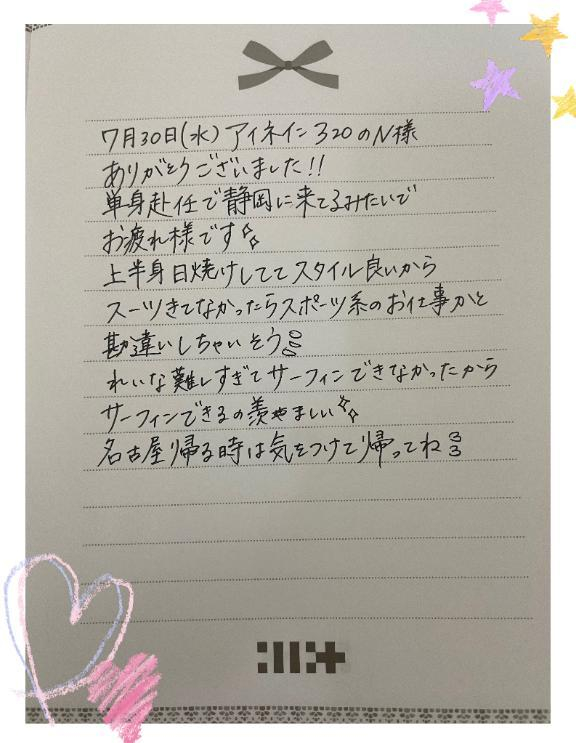 7月30日(水)アイネイン320のN様
ありがとうございました!!
単身赴任で静岡に来てるみたいで
お疲れ様です
上半身日焼けしててスタイル良いから
スーツきてなかったらスポーツ系のお仕事かと
勘違いしちゃいそう
れいな難しすぎてサーフィンできなかったから
サーフィンできるの羨やましい
名古屋帰る時は気をつけて帰ってね